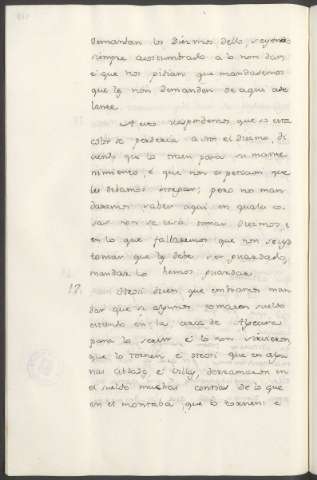 demandan los Diezmos dello, seyendo
siempre acostumbrado a lo non dar:
e que nos pidian que mandasemos
que ge lo non demanden de aqui ade
lante.
A esto respondemos que so esta
color se perderia a nos el diezmo, di
ciendo que lo traen para su mante
nimiento, e que non es persona que
les debamos otorgar; pero no man
daremos saber aqui en quales co
sas non se usó tomar Diezmos, e
en lo que fallaremos que non se usó
tomar que ge debe ser guardado,
mandar lo hemos guardar.
17. Otrosi dicen que embiamos man
dar que si algunos tomaron sueldo
estando en la cerca de Algecira
para la servir e lo non sirvieron
que lo tornen, e otrosi que en algu
nas cibdades, e Villas, derramaron en
el sueldo muchas contias de lo que
en el montaba, que lo tornen: e